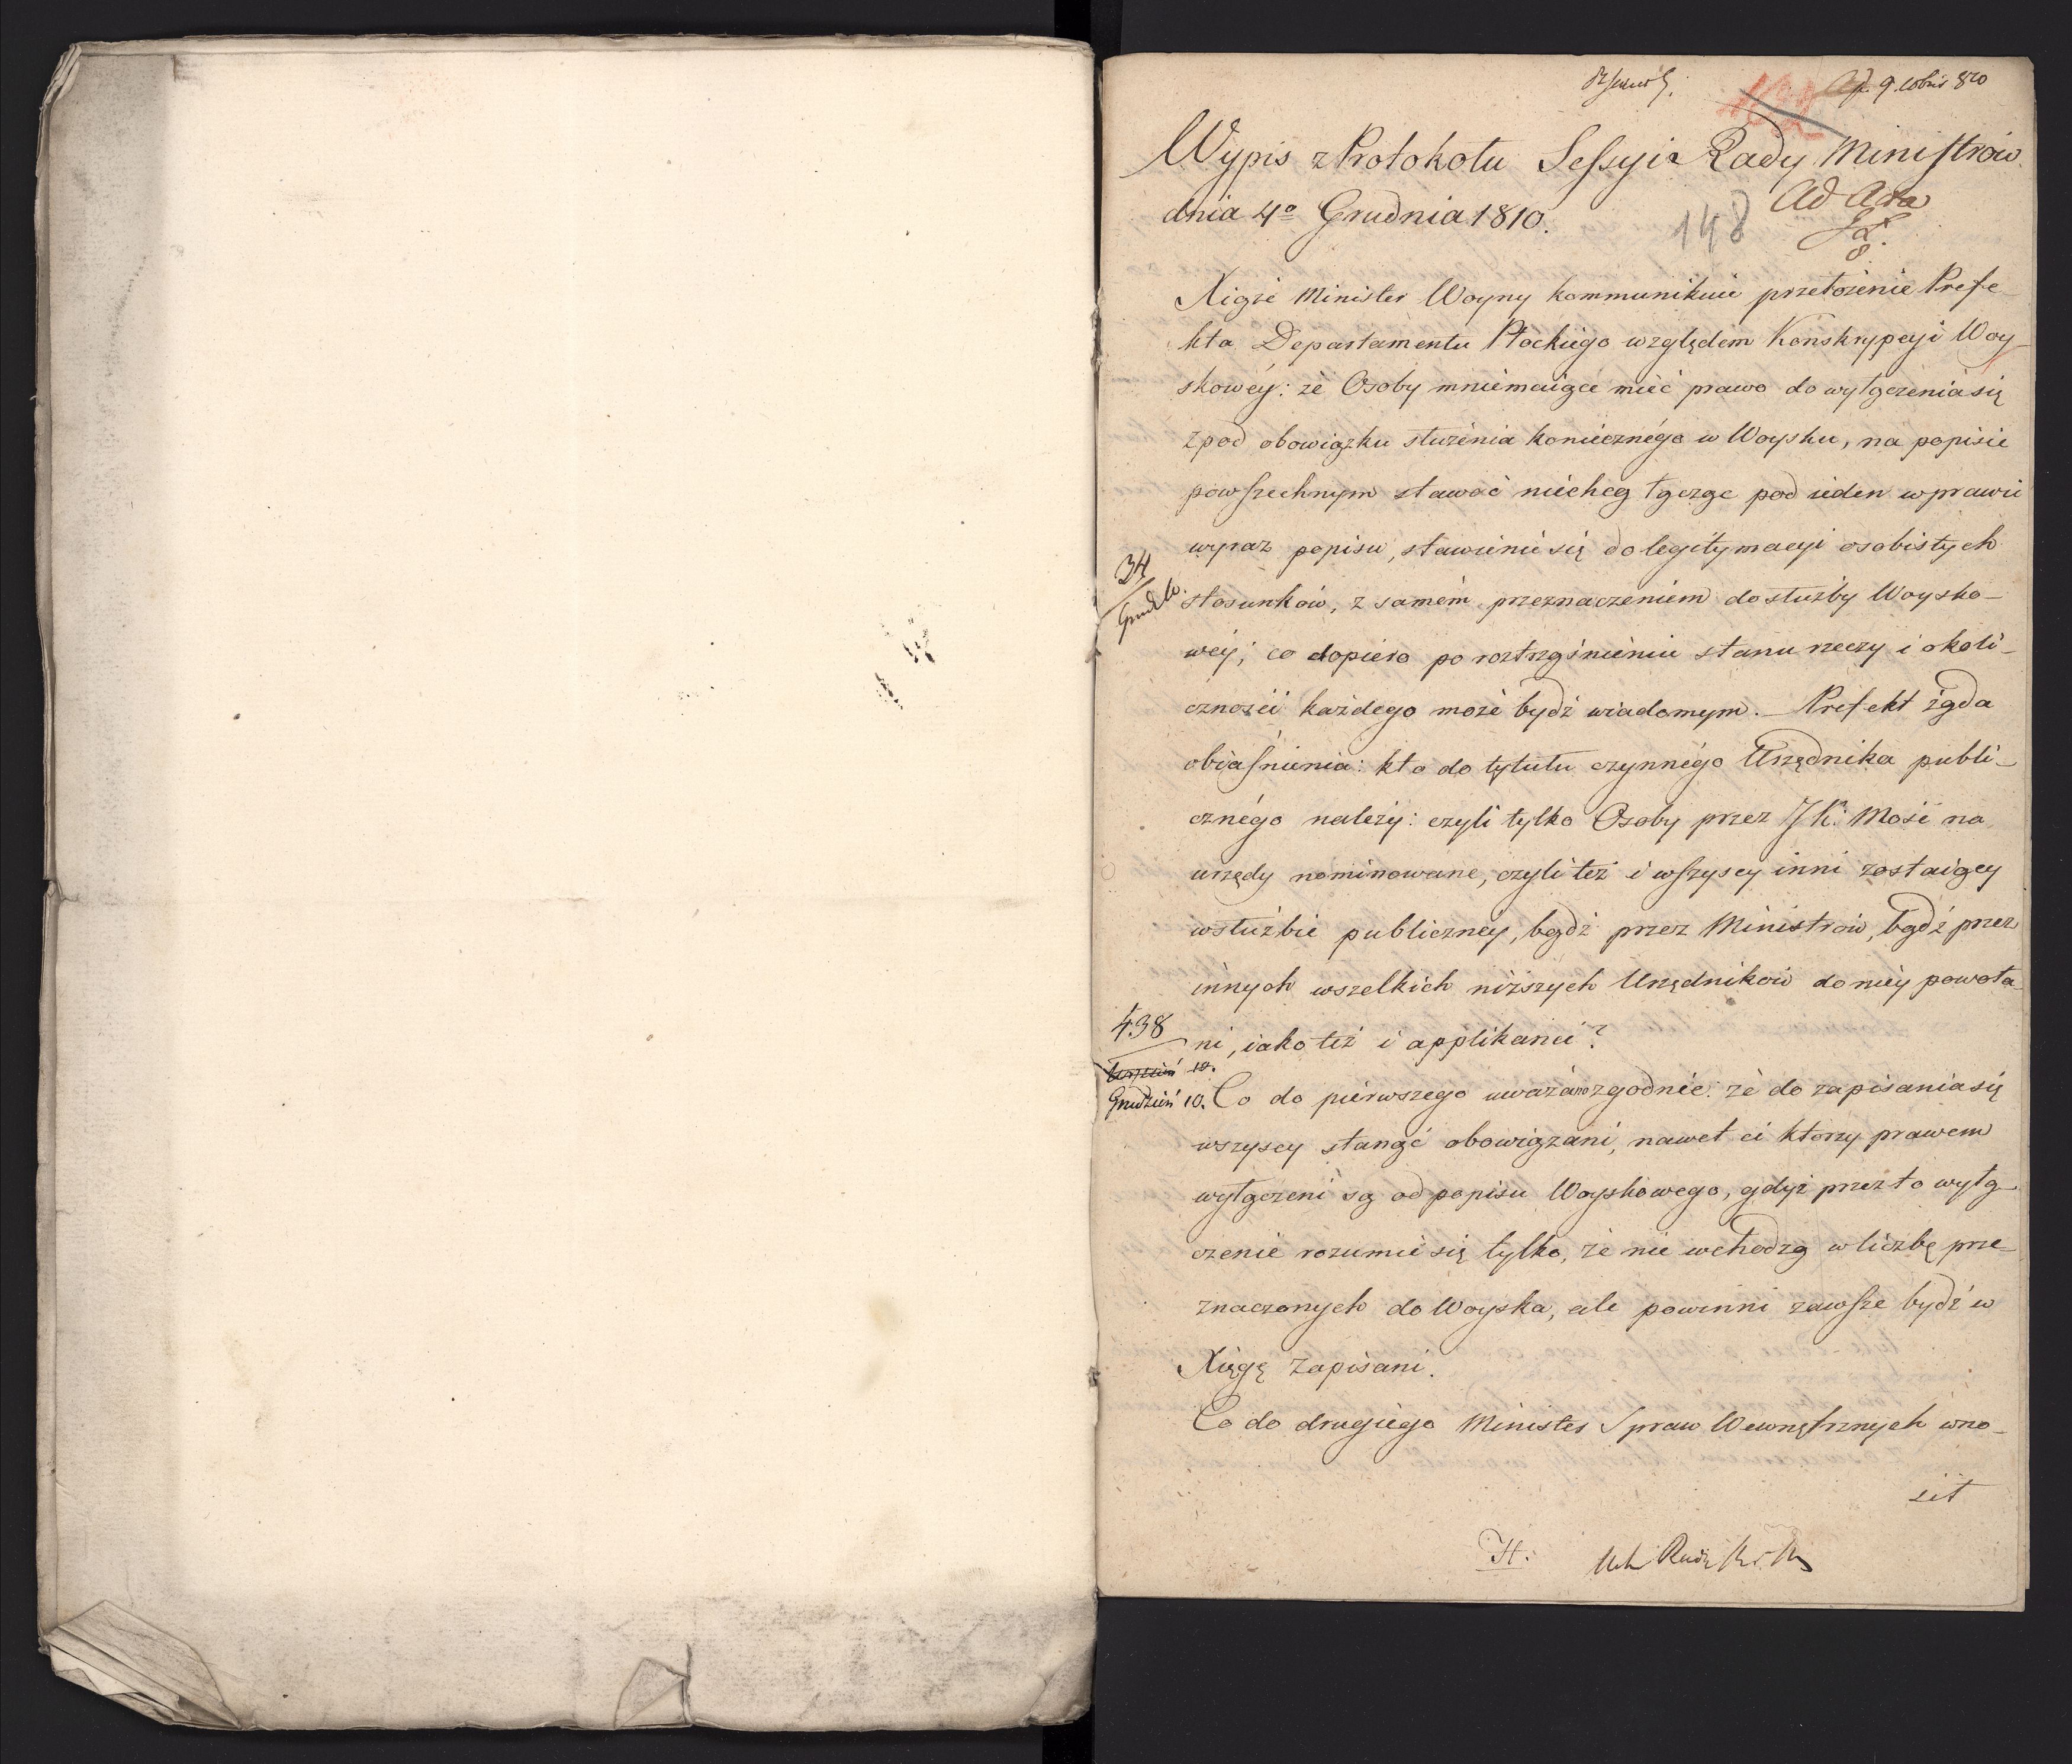 9. 10bris 810
Wypis z Protokołu Sessyi Rady Ministrów
Ad Acta
dnia 4º Grudnia 1810.
148
Xiąże Minister Woyny kommunikuie przełożenie Prefe-
kta Departamentu Płockiego względem Konskrypcyi Woy-
skowéy: że Osoby mniemaiące mieć prawo do wyłączenia się
z pod obowiązku służenia koniecznégo w Woysku, na popisie
powszechnym stawać niechcą łącząc pod ieden w prawie
wyraz popisu, stawienie się do legitymacyi osobistych
34
Grud. 10.
stosunków, z samém przeznaczeniem do służby Woysko-
wéy; co dopiero po roztrząśnieniu stanu rzeczy i okoli-
czności każdego może bydź wiadomym. — Prefekt żąda
obiaśnienia: kto do tytułu czynnégo Urzędnika publi-
cznégo należy: czyli tylko Osoby przez JK: Mość na
urzędy nominowane, czyli też i wszyscy inni zostaiący
w służbie publicznéy, bądź przez Ministrów, bądź przez
innych wszelkich niższych Urzędników do niéy powoła-
438
ni, iako też i applikanci?
10.
Grudzień 10.
Co do piérwszego uważano zgodnie: że do zapisania się
wszyscy stanąć obowiązani, nawet ci ktorzy prawem
wyłączeni są od popisu Woyskowego, gdyż przez to wyłą-
czenie rozumie się tylko, że nie wchodzą w liczbę prze-
znaczonych do Woyska, ale powinni zawsze bydź w
Xięgę zapisani.
Co do drugiégo Minister Spraw Wewnętrznych wno-
sił